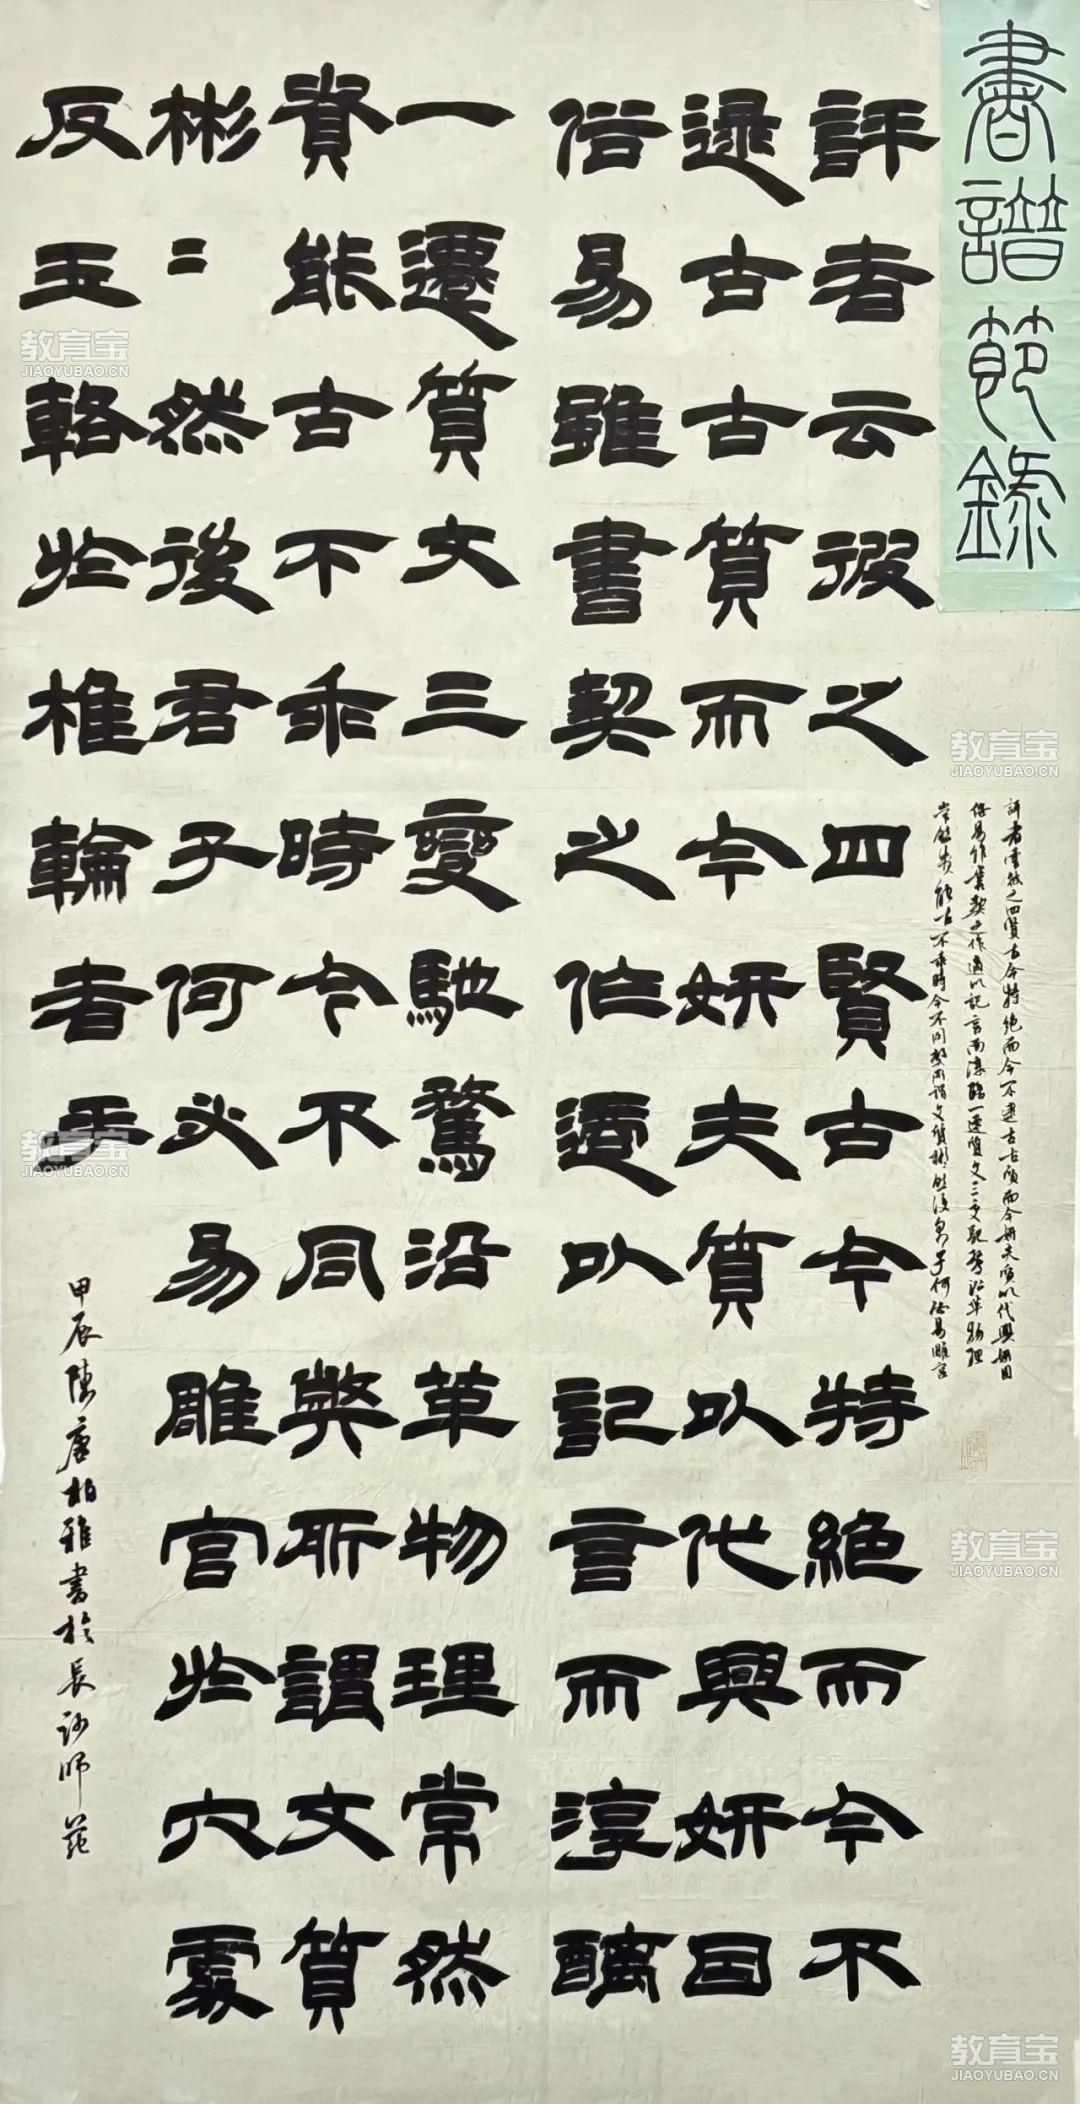 書譜節錄
評者云彼之四賢古今特絕而今不
逮古古質而今妍夫質以代興妍因
俗易雖書契之作適以記言而淳醨
一遷質文三變馳騖沿革物理常然
貴能古不乖時今不同弊所謂文質
彬〻然後君子何必易雕宮於穴處
反玉輅於椎輪者乎
評者云彼之四賢古今特絕而今不逮古古質而今妍夫質以代興妍因
俗易作書契之作適以記言而淳醨一遷質文三變馳騖沿革物理
常然貴能古不乖時今不同弊所謂文質彬然後君子何必易雕宮
甲辰陳唐柏雅書於長沙師苑
教育宝
JIAOYUBAO.CN
教育宝
JIAOYUBAO.CN
教育宝
JIAOYUBAO.CN
教育宝
JIAOYUBAO.CN
教育宝
JIAOYUBAO.CN